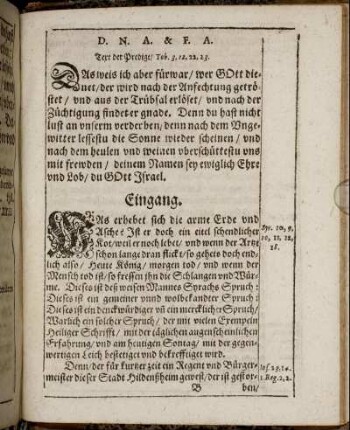 D. N. A. & F. A.
Text der Predigt/ Tob. 3, 22, 23.
DAs weis ich aber fürwar/ wer GOtt die-
net/ der wird nach der Anfechtung getrö-
stet/ vnd aus der Trübsal erlöset/ vnd nach der
Züchtigung findet er gnade. Denn du hast nicht
lust an vnserm verderben/ denn nach dem Vnge-
witter lessestu die Sonne wieder scheinen/ vnd
nach dem heulen vnd weinen vberschüttestu vns
mit frewden/ deinem Namen sey ewiglich Ehre
vnd Lob/ du GOtt Jsrael.
Eingang.
WAs erhebet sich die arme Erde vnd
Asche? Ist er doch ein eitel schendlicher
Kot/ weil er noch lebet/ vnd wenn der Artzt
schon lange dran flickt/ so gehets doch end-
lich also/ Heute König/ morgen tod/ vnd wenn der
Mensch tod ist/ so fressen jhn die Schlangen vnd Wür-
me. Dieses ist des weisen Mannes Syrachs Spruch:
Dieses ist ein gemeiner vnnd wolbekandter Spruch:
Dieses ist ein denckwürdiger vñ ein mercklicher Spruch/
Warlich ein solcher Spruch/ der mit vielen Exempeln
Heiliger Schrifft/ mit der täglichen augenscheinlichen
Erfahrung/ vnd am heutigen Sontag/ mit der gegen-
wertigen Leich bestetiget vnd bekrefftiget wird.
Denn/ der für kurtzer zeit ein Regent vnd Bürger-
meister dieser Stadt Hildenßheim gewest/ der ist gestor-
B ben/
Syr. 10, 9,
10, 11, 12,
Jos. 23, 14.
1. Reg. 2, 2.